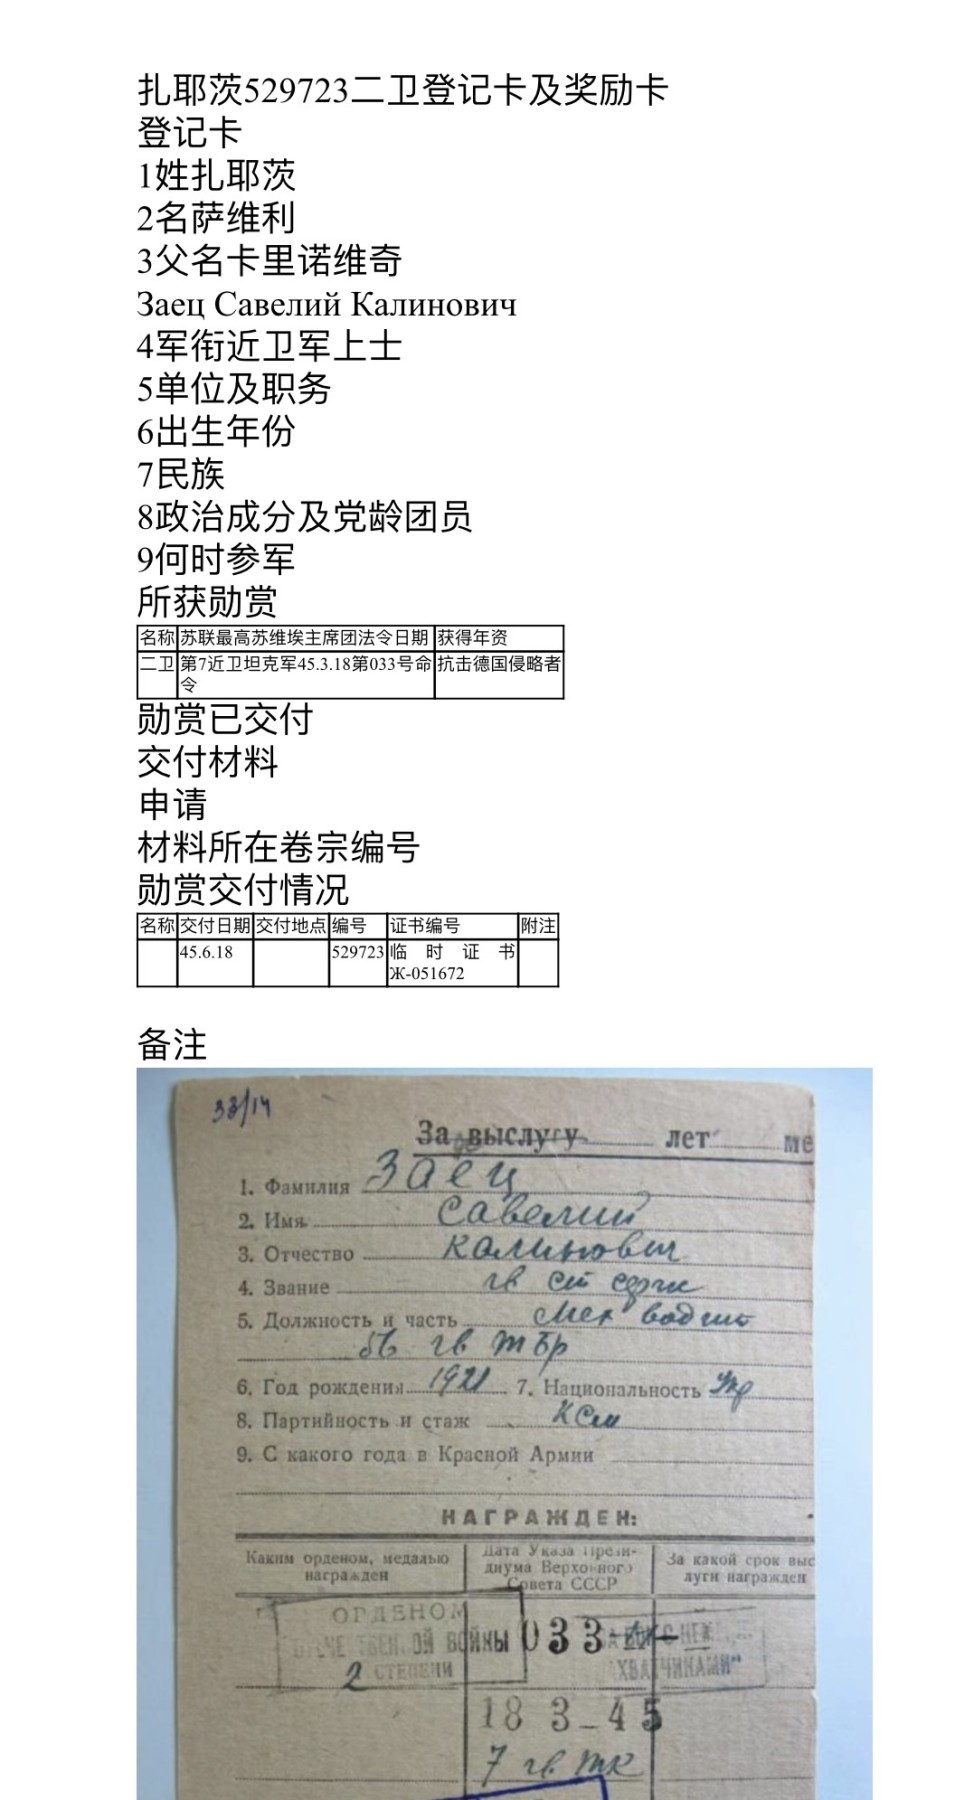 扎耶茨529723二卫登记卡及奖励卡
登记卡
1姓扎耶茨
2名萨维利
3父名卡里诺维奇
Заец Савелий Калинович
4军衔近卫军上士
5单位及职务
6出生年份
7民族
8政治成分及党龄团员
9何时参军
所获勋赏
名称 苏联最高苏维埃主席团法令日期 获得年资
二卫 第7近卫坦克军45.3.18第033号命 抗击德国侵略者
令
勋赏已交付
交付材料
申请
材料所在卷宗编号
勋赏交付情况
名称 交付日期 交付地点 编号 证书编号 附注
45.6.18 529723 临时证书
Ж-051672
备注
33/14
За выслугу лет ме
1. Фамилия Заец
2. Имя Савелий
3. Отчество Калинович
4. Звание гв ст серж
5. Должность и часть мех водит
56 гв тбр
6. Год рождения 1921 7. Национальность укр
8. Партийность и стаж ксм
9. С какого года в Красной Армии
НАГРАЖДЕН:
Каким орденом, медалью Дата Указа Прези- За какой срок выс
награжден диума Верховного луги награжден
Совета СССР
ОРДЕНОМ
ОТЕЧЕСТВЕННОЙ ВОЙНЫ 033
2 СТЕПЕНИ ХВАТЧИКАМИ"
18 3-45
7 гв тк